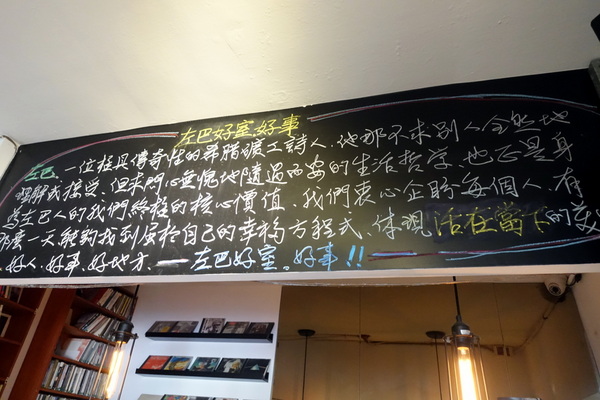 左巴好室.好事
左巴.一位極具傳奇性的希腊礦工詩人.他那不求別人全然地
理解或接受.但求問心無愧他隨遇而安的生活哲學.也正是身
為左巴人的我們終極的核心價值.我們衷心企盼每個人.有
那麼一天能夠找到屬於自己的幸福方程式.体現活在當下的
.好人.好事.好地方.——左巴好室.好事!!